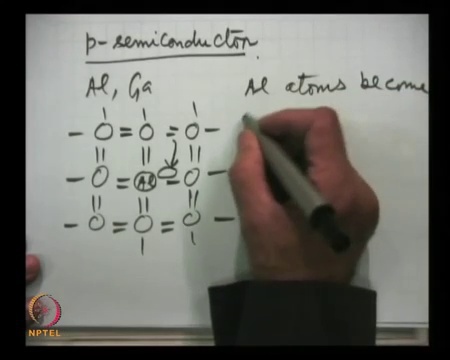 p-semiconductor
Al, Ga
Al atoms become
Al
NPTEL